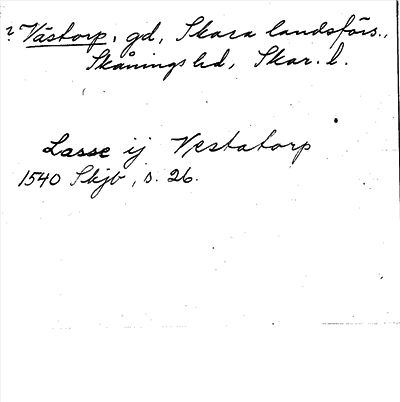 ? Västorp, gd, Skara landsförs.,
Skånings hd, Skar. l.
Lasse ij Vestatorp
1540 Skjb, s. 26.